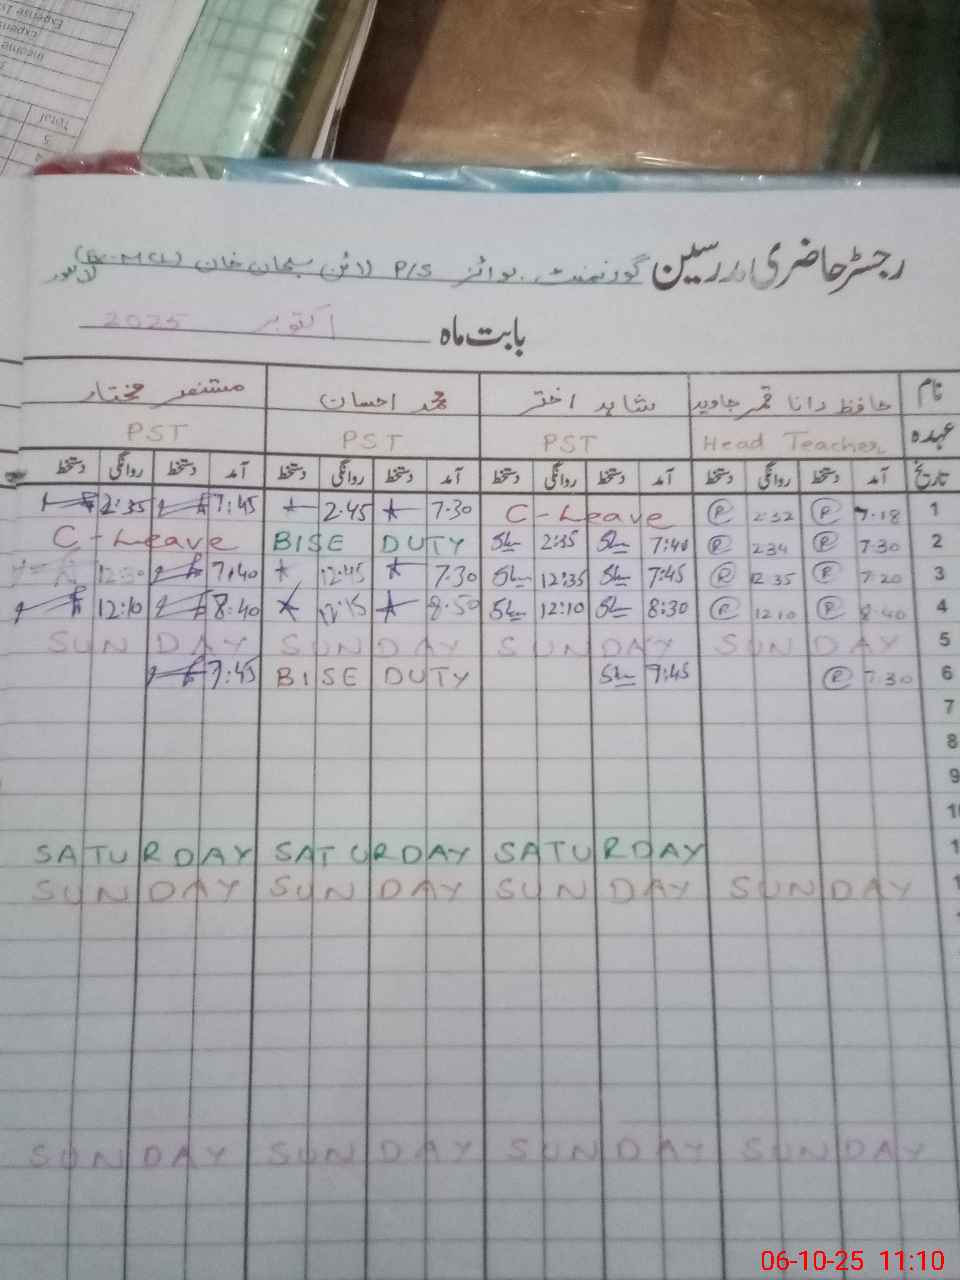 Expense
expense
income
Total
5
4
رجسٹر حاضری مدرسین گورنمنٹ بوائز P/S لائن سبحان خان (Ex-MCL) لاہور
بابت ماہ اکتوبر 2025
نام حافظ رانا قمر جاوید شاہد اختر محمد احسان مستنصر مختار
عہدہ Head Teacher PST PST PST
تاریخ آمد دستخط روانگی دستخط آمد دستخط روانگی دستخط آمد دستخط روانگی دستخط آمد دستخط روانگی دستخط
1 7.18 R 2:32 R C-Leave 7.30 2.45 7:45 2:35
2 7.30 R 2:34 R 7:40 2:35 BISE DUTY C-Leave
3 7.20 R 12:35 R 7:45 12:35 7.30 12:45 7:40 12:30
4 8.40 R 12:10 R 8:30 12:10 8.50 12:15 8:40 12:10
5 SUNDAY SUNDAY SUNDAY SUNDAY
6 7.30 R 7:45 BISE DUTY 7:45
7
8
9
10
1 SATURDAY SATURDAY SATURDAY
1 SUNDAY SUNDAY SUNDAY SUNDAY
SUNDAY SUNDAY SUNDAY SUNDAY
06-10-25 11:10